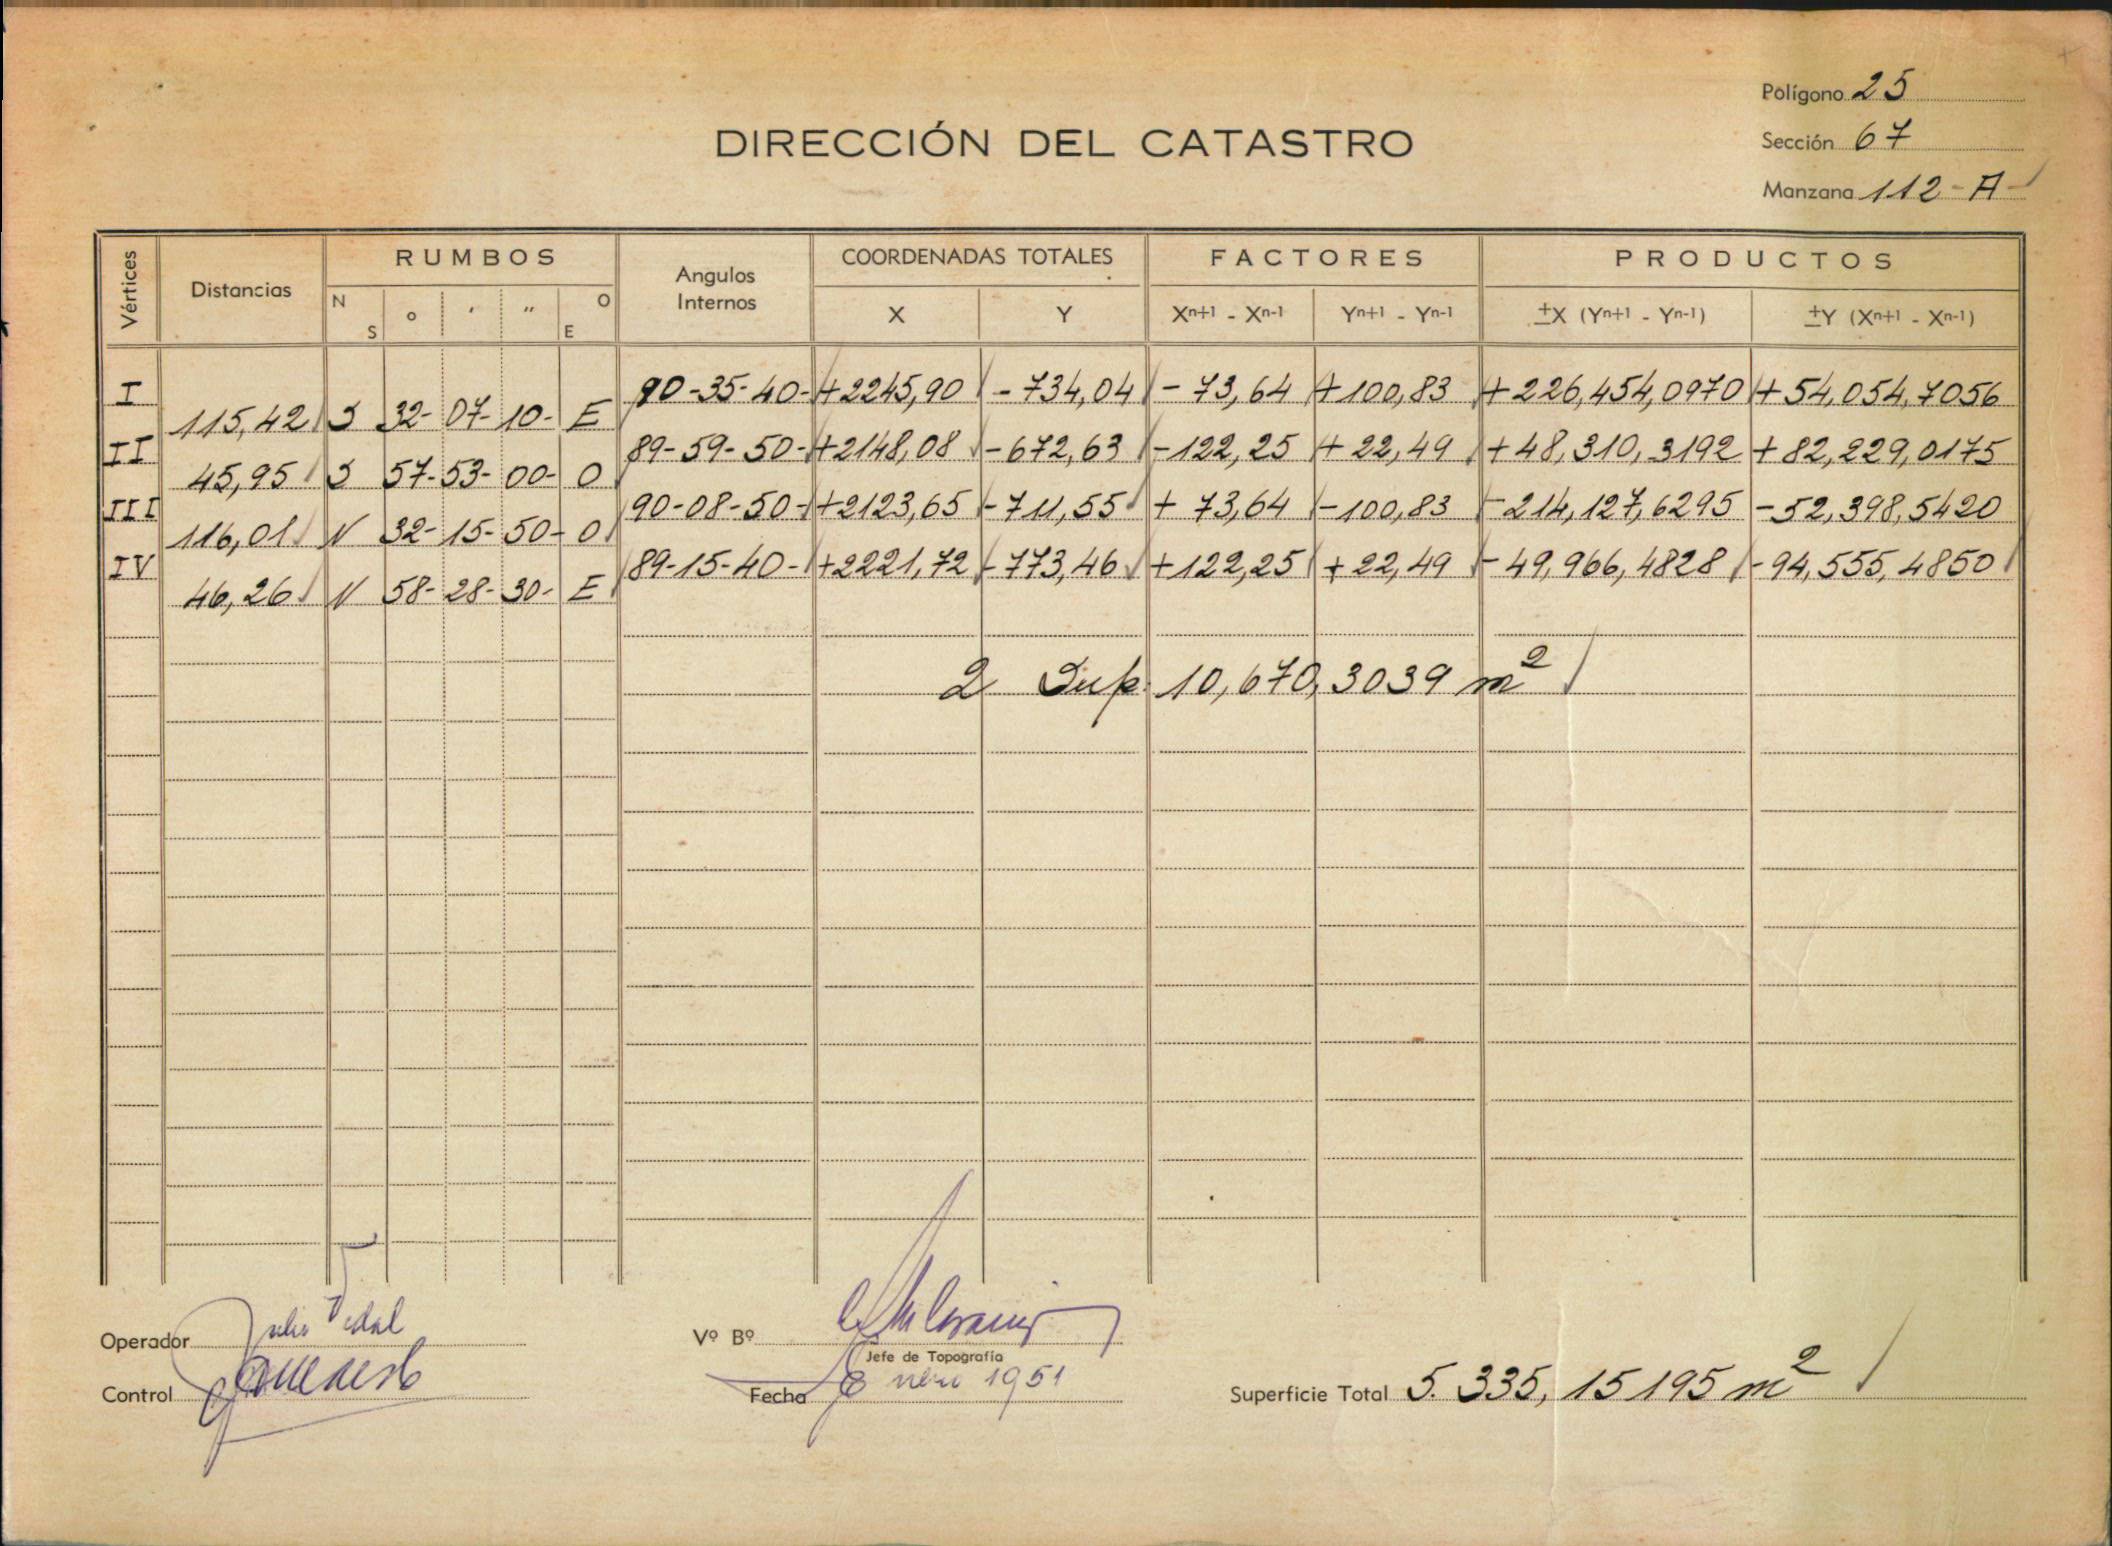 Polígono 25
DIRECCIÓN DEL CATASTRO
Sección 67
Manzana 112-A-
Vértices Distancias RUMBOS Angulos Internos COORDENADAS TOTALES FACTORES PRODUCTOS
N S o ' '' O E X Y Xn+1 - Xn-1 Yn+1 - Yn-1 ±X (Yn+1 - Yn-1) ±Y (Xn+1 - Xn-1)
I 90-35-40- +2245,90 -734,04 -73,64 +100,83 +226,454,0970 +54,054,7056
115,42 S 32- 07- 10- E
II 89-59-50- +2148,08 -672,63 -122,25 +22,49 +48,310,3192 +82,229,0175
45,95 S 57- 53- 00- O
III 90-08-50- +2123,65 -711,55 +73,64 -100,83 -214,127,6295 -52,398,5420
116,01 N 32- 15- 50- O
IV 89-15-40- +2221,72 -773,46 +122,25 +22,49 -49,966,4828 -94,555,4850
46,26 N 58- 28- 30- E
2 Sup. 10,670,3039 m²
Operador Julio Vidal
Vº Bº
Jefe de Topografía
Control
Fecha Enero 1951
Superficie Total 5.335,15195 m²